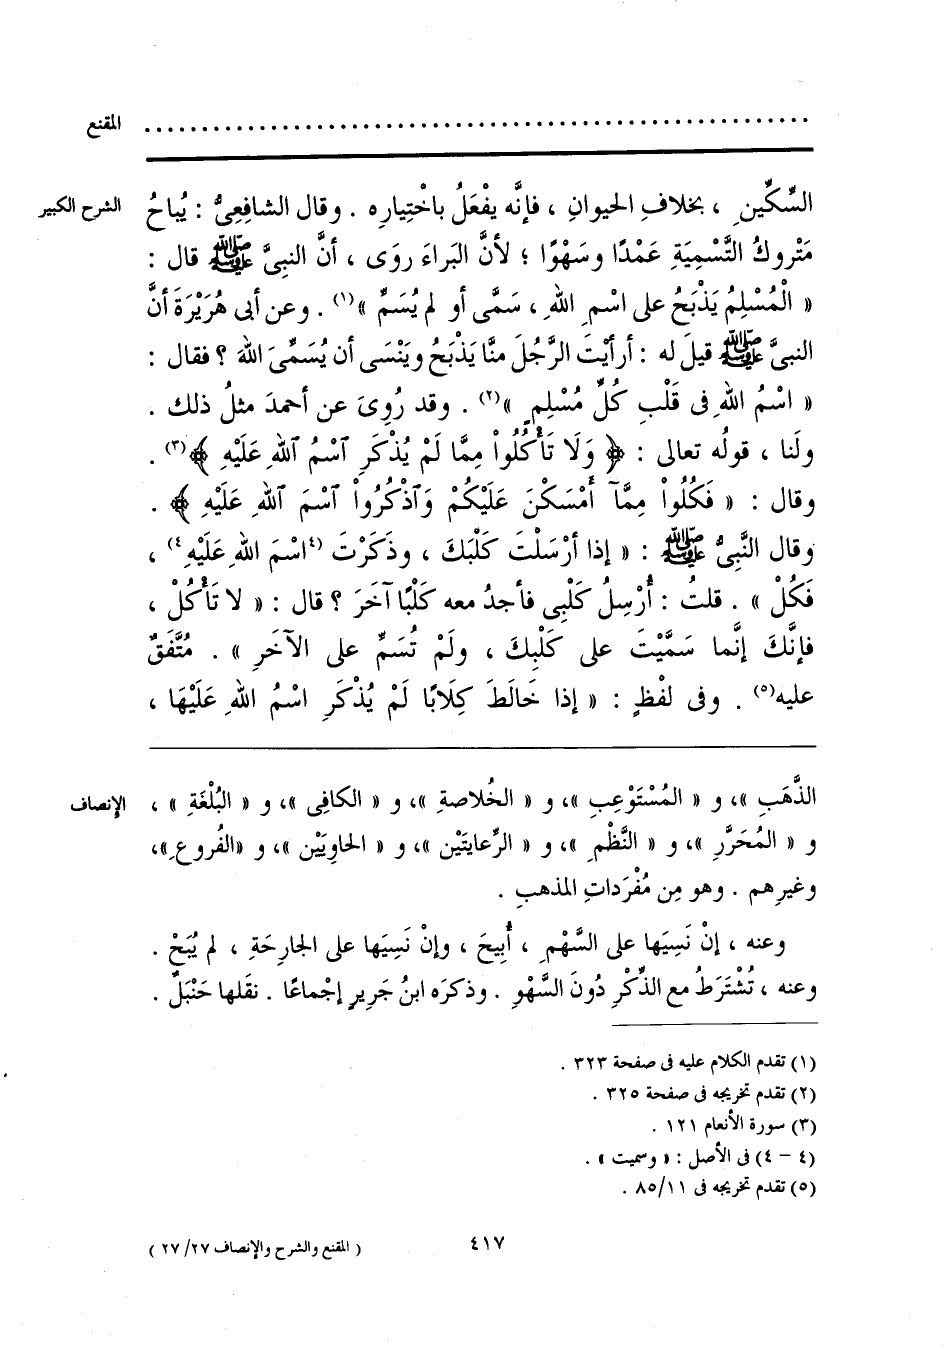 المقنع ............................................................
الشرح الكبير
السِّكِّينِ ، بخلافِ الحيوانِ ، فإنَّه يفْعَلُ باخْتِيارِه . وقال الشافِعِىُّ : يُباحُ
مَتْروكُ التَّسْمِيَةِ عَمْدًا وسَهْوًا ؛ لأنَّ البَراءَ روَى ، أنَّ النبىَّ ﷺ قال :
« الْمُسْلِمُ يَذْبَحُ على اسْمِ اللهِ ، سَمَّى أو لم يُسَمِّ »(١) . وعن أبى هُرَيْرَةَ أنَّ
النبىَّ ﷺ قيلَ له : أرأيْتَ الرَّجُلَ منَّا يَذْبَحُ ويَنْسَى أن يُسَمِّىَ اللهَ ؟ فقال :
« اسْمُ اللهِ فى قَلْبِ كُلِّ مُسْلِمٍ »(٢) . وقد رُوِىَ عن أحمدَ مثلُ ذلك .
ولَنا ، قولُه تعالى : ﴿ وَلَا تَأْكُلُواْ مِمَّا لَمْ يُذْكَرِ ٱسْمُ ٱللهِ عَلَيْهِ ﴾(٣) .
وقال : « فَكُلُواْ مِمَّآ أَمْسَكْنَ عَلَيْكُمْ وَٱذْكُرُواْ ٱسْمَ ٱللهِ عَلَيْهِ ﴾ .
وقال النَّبِىُّ ﷺ : « إذا أرْسَلْتَ كَلْبَكَ ، وذَكَرْتَ (٤اسْمَ اللهِ عَلَيْهِ٤) ،
فَكُلْ » . قلتُ : أُرْسِلُ كَلْبِى فأجدُ معه كَلْبًا آخَرَ ؟ قال : « لا تَأْكُلْ ،
فإنَّكَ إنَّما سَمَّيْتَ على كَلْبِكَ ، ولَمْ تُسَمِّ على الآخَرِ » . مُتَّفَقٌ
عليه(٥) . وفى لفْظٍ : « إذا خَالَطَ كِلَابًا لَمْ يُذْكَرِ اسْمُ اللهِ عَلَيْهَا ،
الإنصاف
الذَّهَبِ »، و « المُسْتَوْعِبِ »، و « الخُلاصةِ »، و « الكافِى »، و « البُلْغَةِ » ،
و « المُحَرَّرِ »، و « النَّظْمِ »، و « الرِّعايتَيْن »، و « الحاوِيَيْن »، و «الفُروعِ»،
وغيرِهم . وهو مِن مُفْرَداتِ المذهبِ .
وعنه ، إنْ نَسِيَها على السَّهْمِ ، أُبِيحَ ، وإنْ نَسِيَها على الجارِحَةِ ، لم يُبَحْ .
وعنه ، تُشْتَرَطُ مع الذِّكْرِ دُونَ السَّهْوِ . وذكرَه ابنُ جَريرٍ إجْماعًا . نقَلها حَنْبَلٌ .
(١) تقدم الكلام عليه فى صفحة ٣٢٣ .
(٢) تقدم تخريجه فى صفحة ٣٢٥ .
(٣) سورة الأنعام ١٢١ .
(٤ - ٤) فى الأصل : « وسميت » .
(٥) تقدم تخريجه فى ٨٥/١١ .
٤١٧
( المقنع والشرح والإنصاف ٢٧/٢٧ )